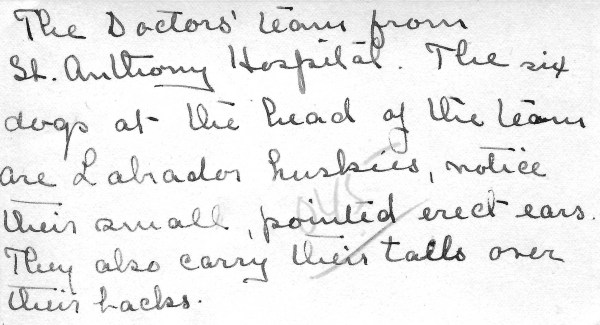 The Doctors' team from
St. Anthony Hospital. The six
dogs at the head of the team
are Labrador huskies, notice
their small, pointed erect ears.
They also carry their tails over
their backs.